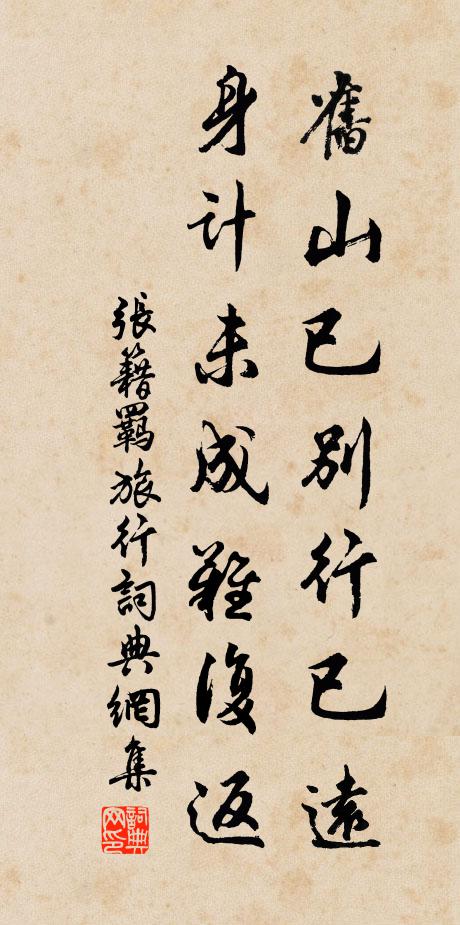 舊山已別行已遠
身計未成難復返
張籍羈旅行詞典網集
詞典網印